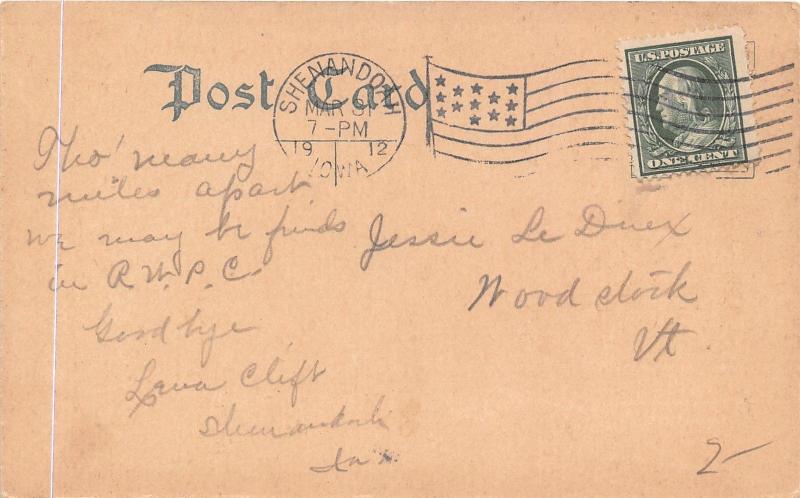 Post Card
SHENANDOAH
MAR 31
7-PM
19 12
IOWA
U.S. POSTAGE
ONE CENT
Tho' many
miles apart
we may be frinds
in R.W.P.C.
Goodbye
Clift
Shenandoah
Ia
Jessie Le Duex
Woodstock
Vt
2-